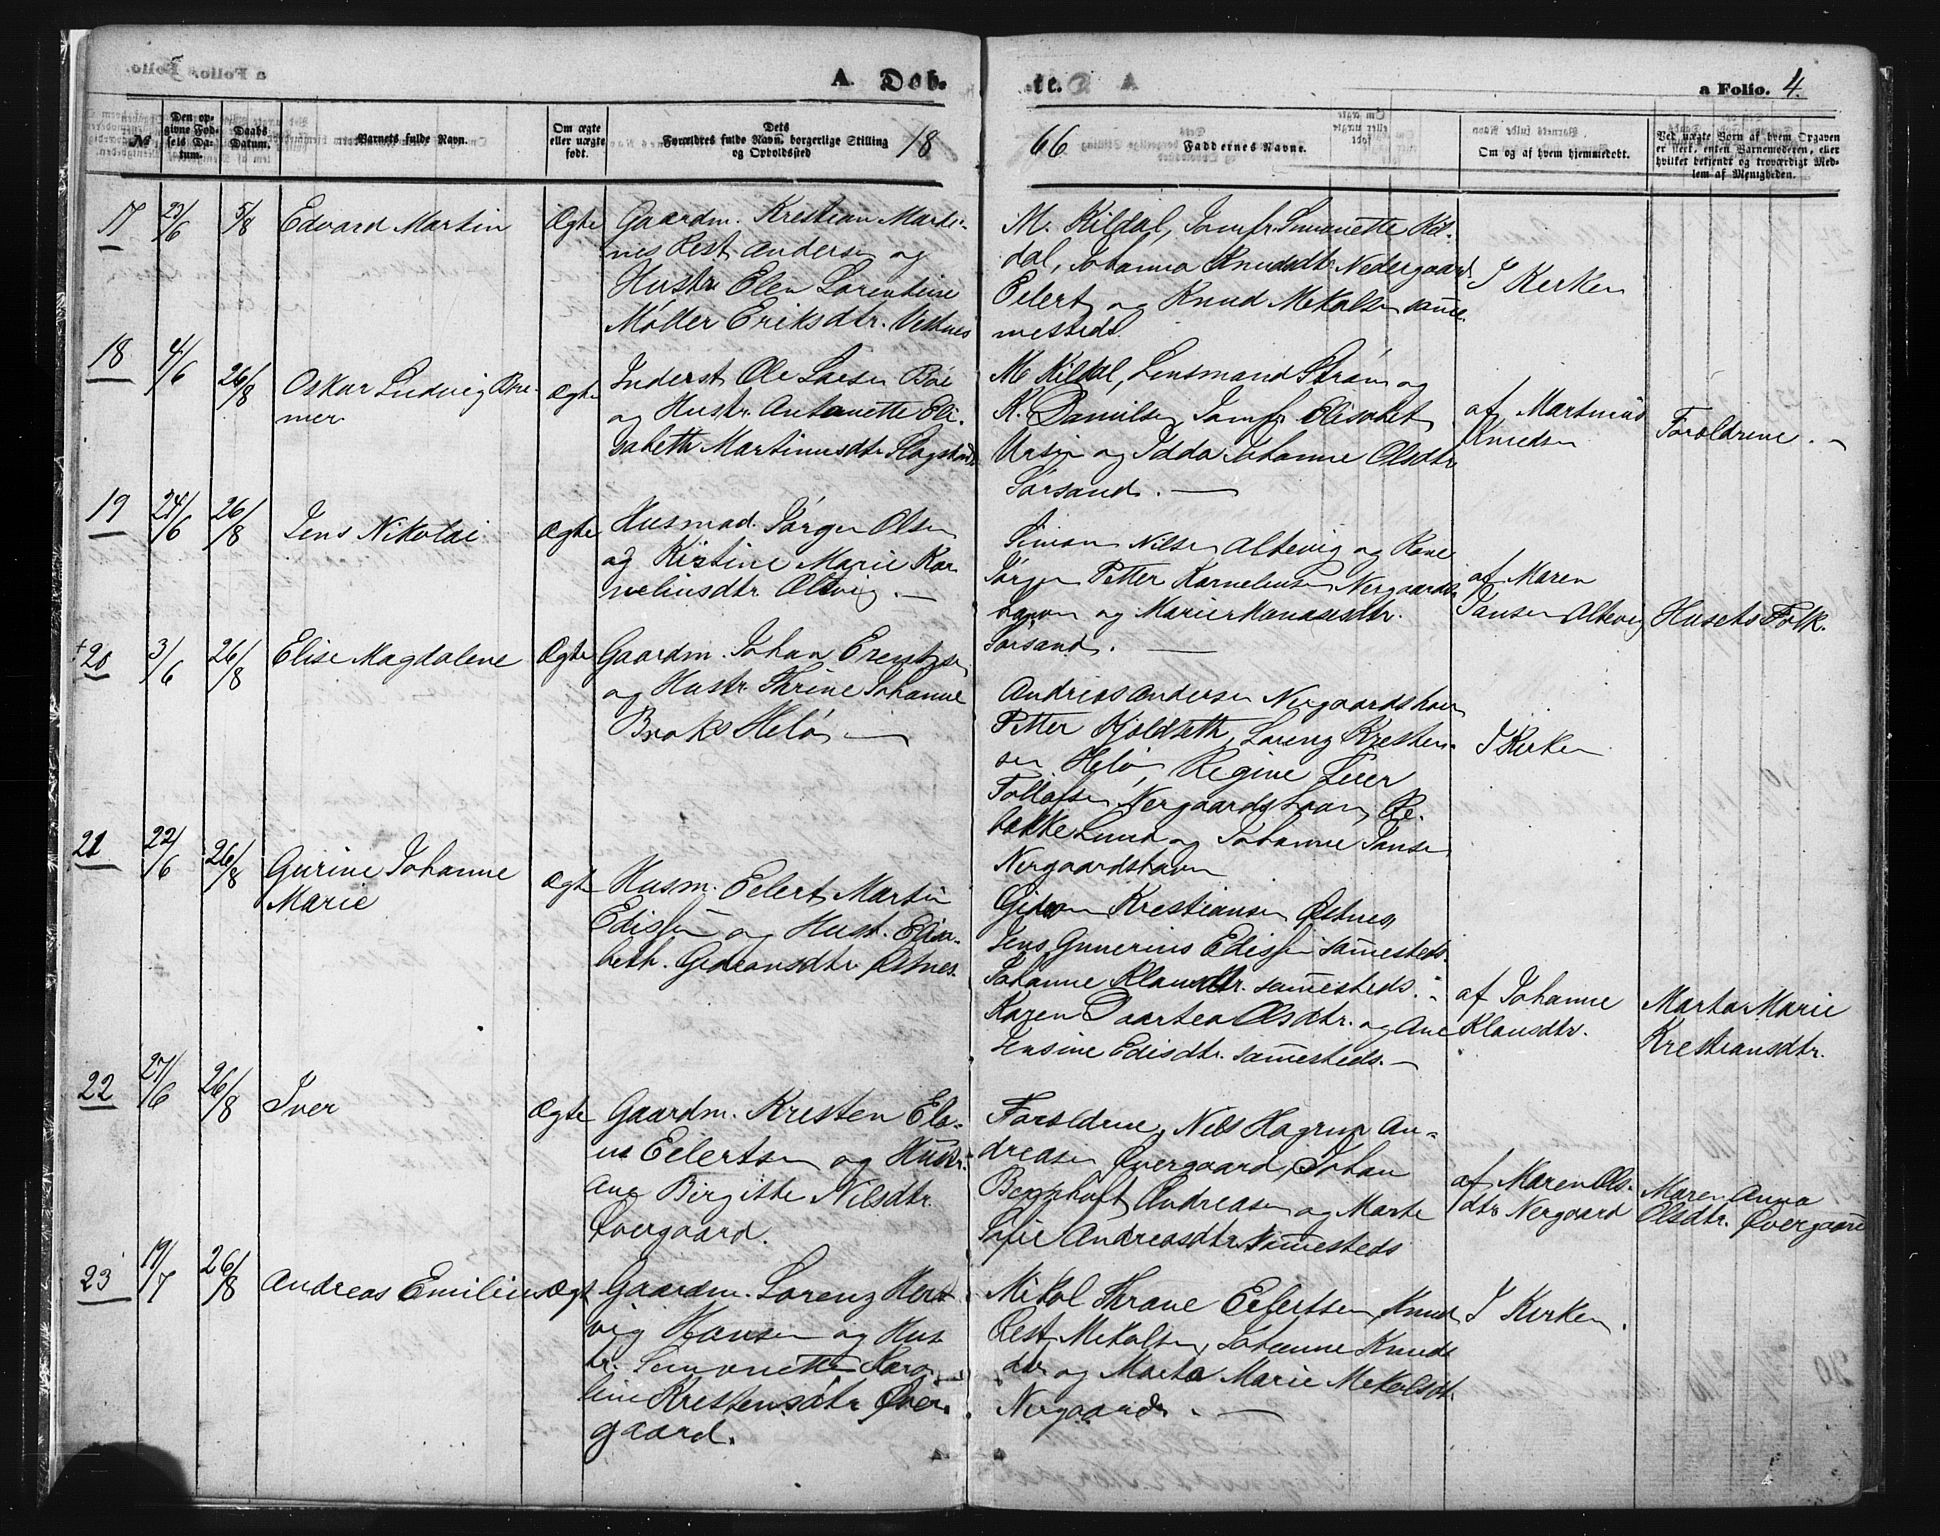 A. Døb-
te.
a Folio. 4.
18
66
No
Den op-
givne Fød-
sels Da-
tum.
Daabs
Datum.
Barnets fulde Navn.
Om ægte
eller uægte
født.
Dets
Forældres fulde Navn, borgerlige Stilling
og Opholdssted
Faddernes Navne.
Om og af hvem hjemmedøbt.
Ved uægte Børn af hvem Opgaven
er skeet, enten Barnemoderen, eller
hvilket bekjendt og troværdigt Med-
lem af Menigheden.
17
23/6
5/8
Edvard Martin
Ægte
Gaardm. Kristian Marti-
nus Rest Andersen og
Hustr. Elen Lorentine
Møller Eriksdtr. Vestnes
M. Kildal, Jomfr. Simonette Kil-
dal, Johanna Knudsdtr. Nedergaard
Eilert og Knud Mekalsen samme-
mesteds
I Kirken
18
4/6
26/8
Oskar Ludvig Bre-
mer
Ægte
Inderst Ole Larsen Bøe
og Hustr. Antonette Eli-
sabeth Martinusdtr. Hogstad
M. Kildal, Lensmand Strøm og
K. Danielsen, Jomfr. Elisabet
Ursin og Idda Johanne Olsdtr.
Sørsand. —
af Martinus
Knudsen
Forældrene. -
19
24/6
26/8
Jens Nikolai
Ægte
Husmad. Jørgen Olsen
og Kistine Marie Kor
neliusdtr. Altevig. —
Simon Nilsen Altevig og Kone
Jørgen Petter Korneliusen Nergaards
havn og Marie Manassedtr.
Sørsand. —
af Maren
Jansen Altevig
Husets Folk.
+20
3/6
26/8
Elise Magdalene
Ægte
Gaardm. Johan Erentsen
og Hustr. Thrine Johanne
Broks Helø —
Andreas Andersen Nergaardshavn
Petter Kjeldseth, Lorenz Kristen-
sen Helø, Regine Leer
Tollefsen Nergaardshavn, Re-
bekke Lund og Johanne Jansen
Nergaardshavn
I Kirken
21
22/6
26/8
Gurine Johanne
Marie
Ægte
Husm. Eilert Martin
Edissen og Hust. Elisa-
beth Gideonsdtr. Østnes.
Gideon Kristiansen Østnes,
Jens Gunerius Edissen sammesteds.
Johanne Klausdtr. sammesteds. -
Karen Daartea Olsdtr. og Ane
Jensine Edisdtr. sammesteds. —
af Johanne
Klausdtr.
Marta Marie
Krestiansdtr.
22
27/6
26/8
Iver
Ægte
Gaardm. Kristen Ela-
us Eilertsen og Hustr.
Ane Birgitte Nilsdtr.
Øvergaard.
Forældrene, Nils Hagrup An-
dreasen Øvergaard, Johan
Bernhoft Andreasen og Marte
Sofie Andreasdtr. sammesteds
af Maren Ols-
dtr. Nergaard
Maren Anna
Olsdtr. Øvergaard
23
19/7
26/8
Andreas Emilius
Ægt
Gaardm. Lorenz Hart-
vig Hansen og Hus
tr. Simonette Karo-
line Kristensdtr. Øver-
gaard.
Mikal Thrane Eilertsen, Knud
Qest Mekalsen, Johanne Knuds
dtr. og Marta Marie Mekalsdtr.
Nergaard. —
I Kirken.